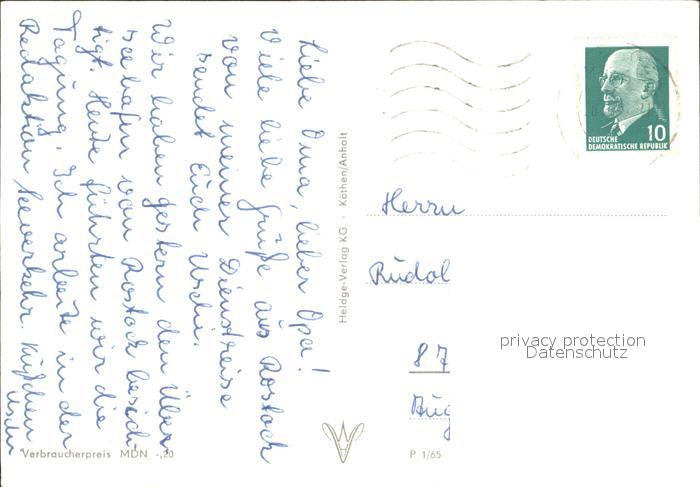 Liebe Oma, lieber Opa!
Viele liebe Grüße aus Rostock
von meiner Dienstreise
sendet Euch Uschi.
Wir haben gestern den Über-
seehafen von Rostock besich-
tigt. Heute führten wir die
Tagung. Ich arbeite in der
Redaktion Seeverkehr. Küßchen
Uschi
Verbraucherpreis MDN -,20
Heldge-Verlag KG · Köthen/Anhalt
10
DEUTSCHE
DEMOKRATISCHE REPUBLIK
Herrn
Rudol
privacy protection
Datenschutz
87
Aug
P 1/65